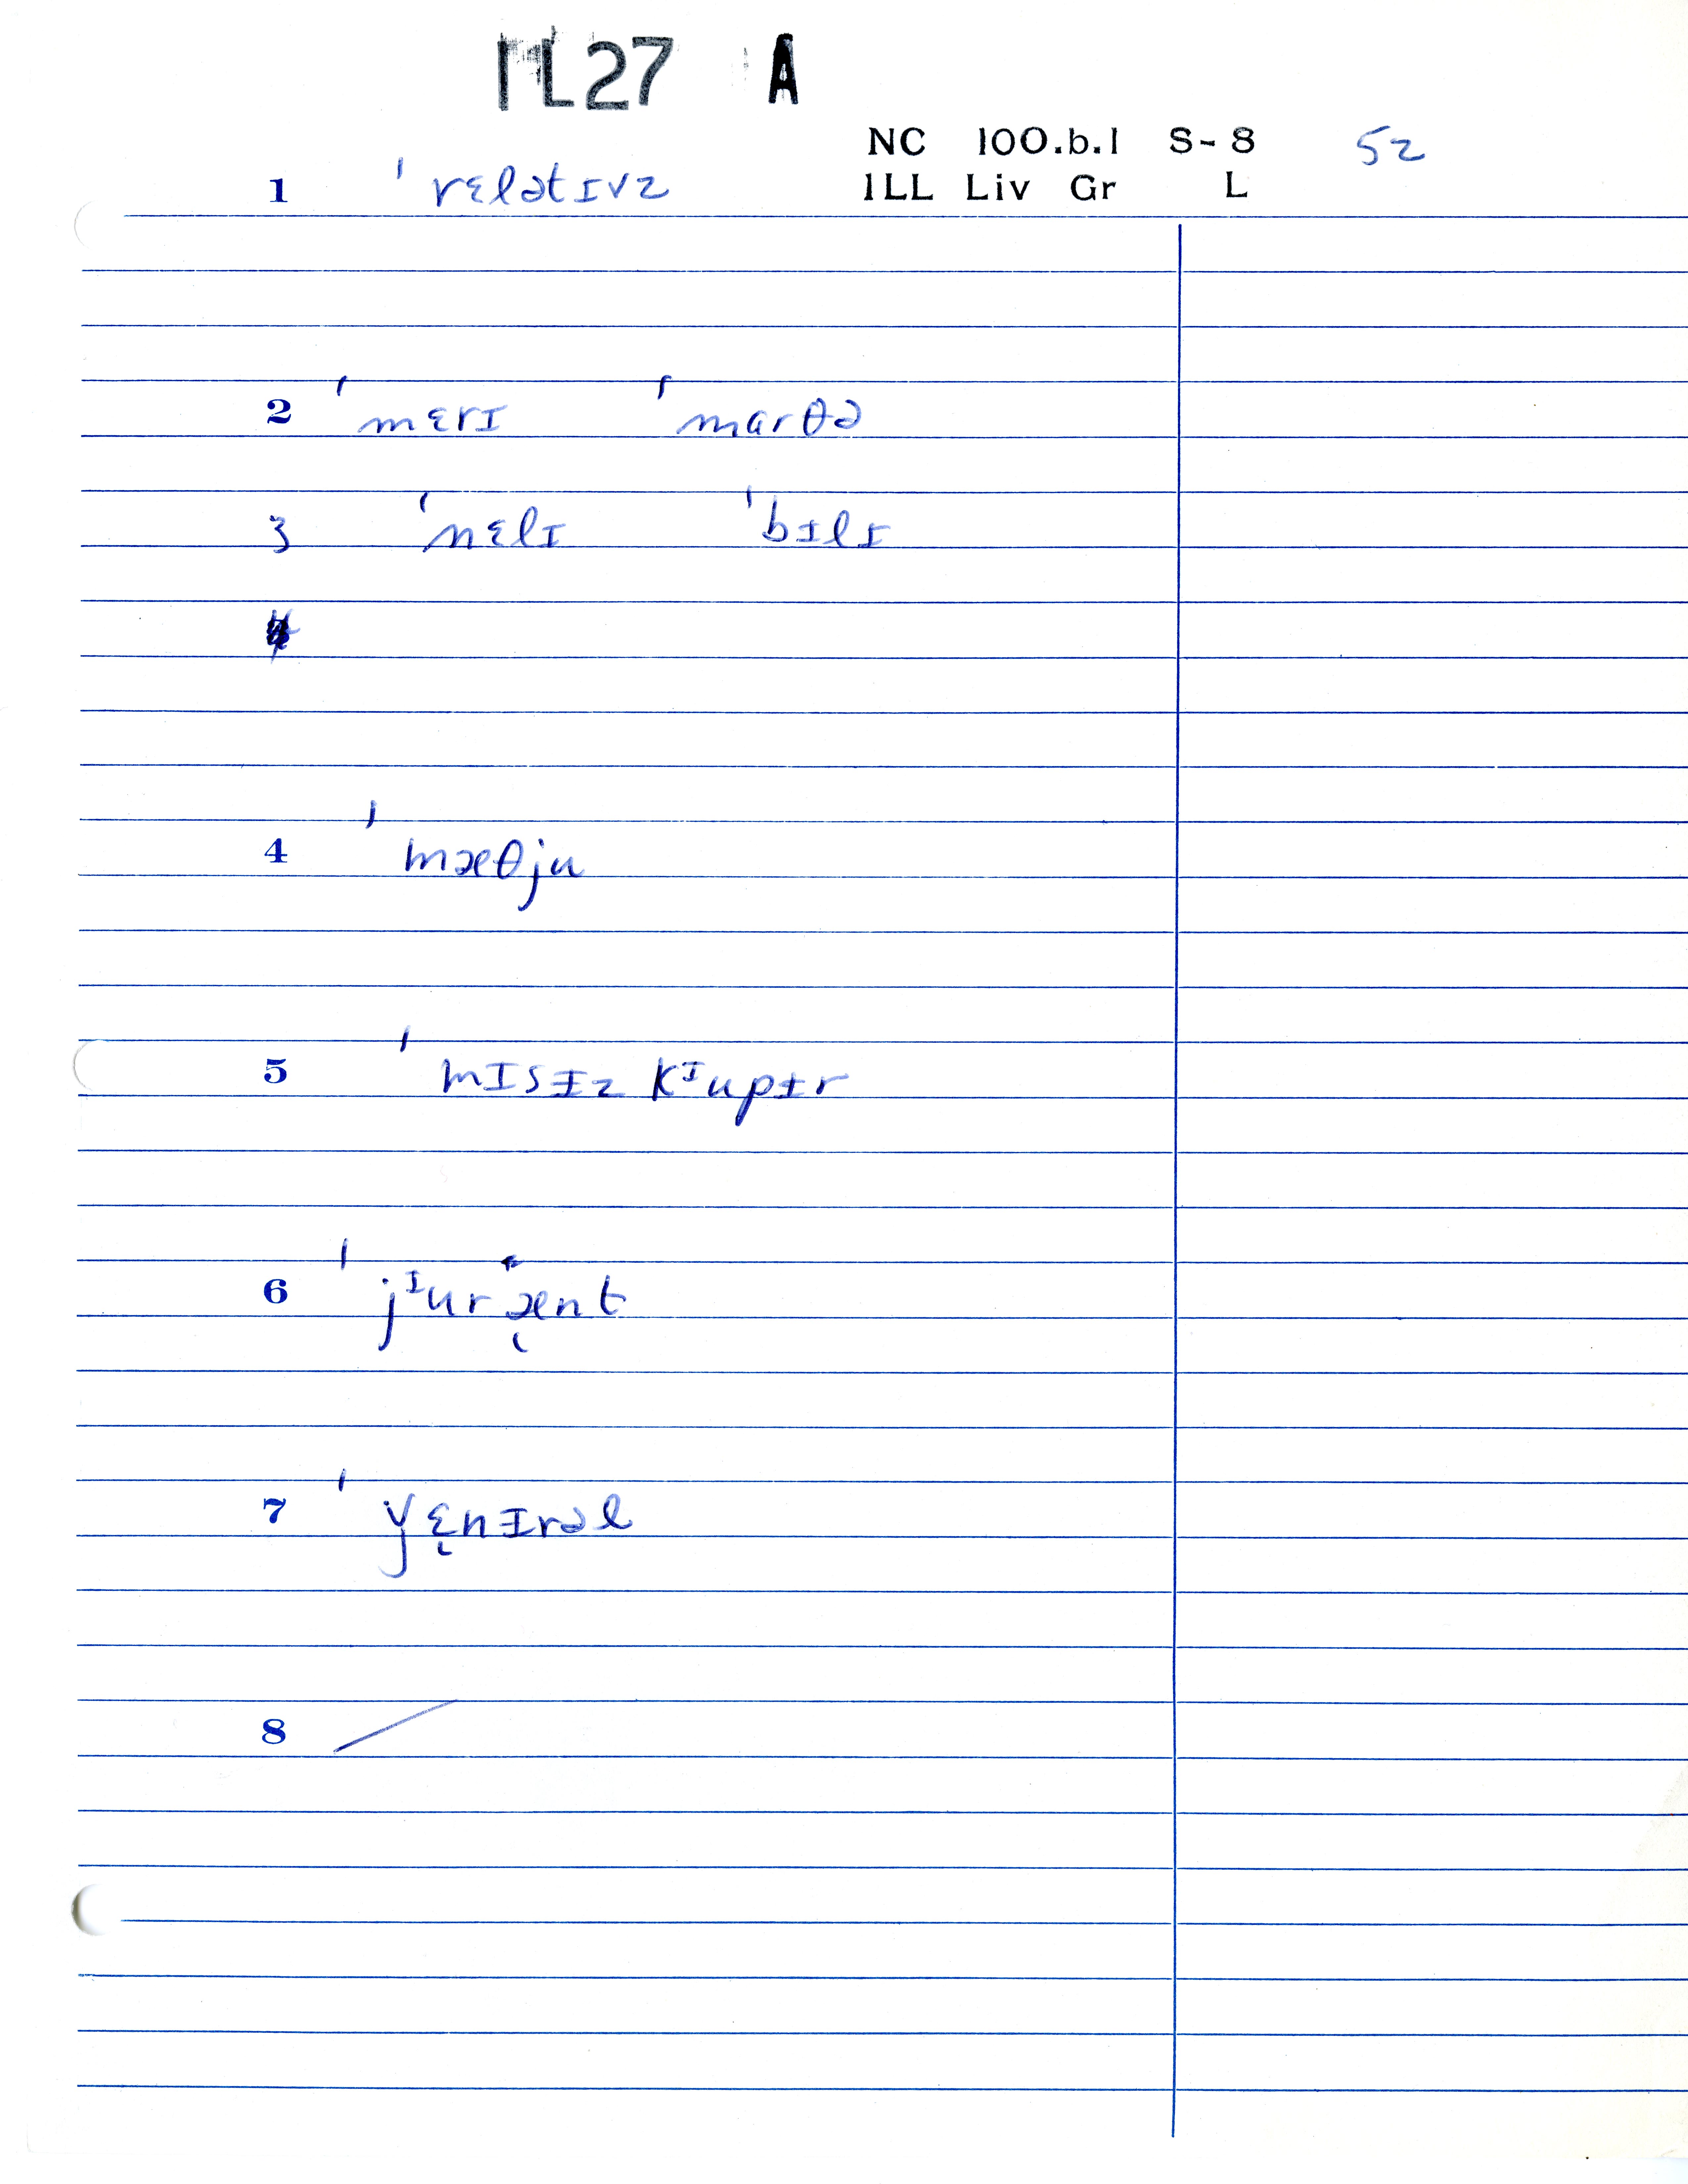 IL27 A
NC 100.b.1 S-8 52
ILL Liv Gr L
1 ˈrɛlətɪvz
2 ˈmɛrɪ ˈmɑrθə
3 ˈnɛlɪ ˈbɪlɪ
4 ˈmæθju
5 ˈmɪsɨz kᶦupɨr
6 ˈjᶦuræ̨nt
7 ˈɏɛ̨nɪrəl
8 /